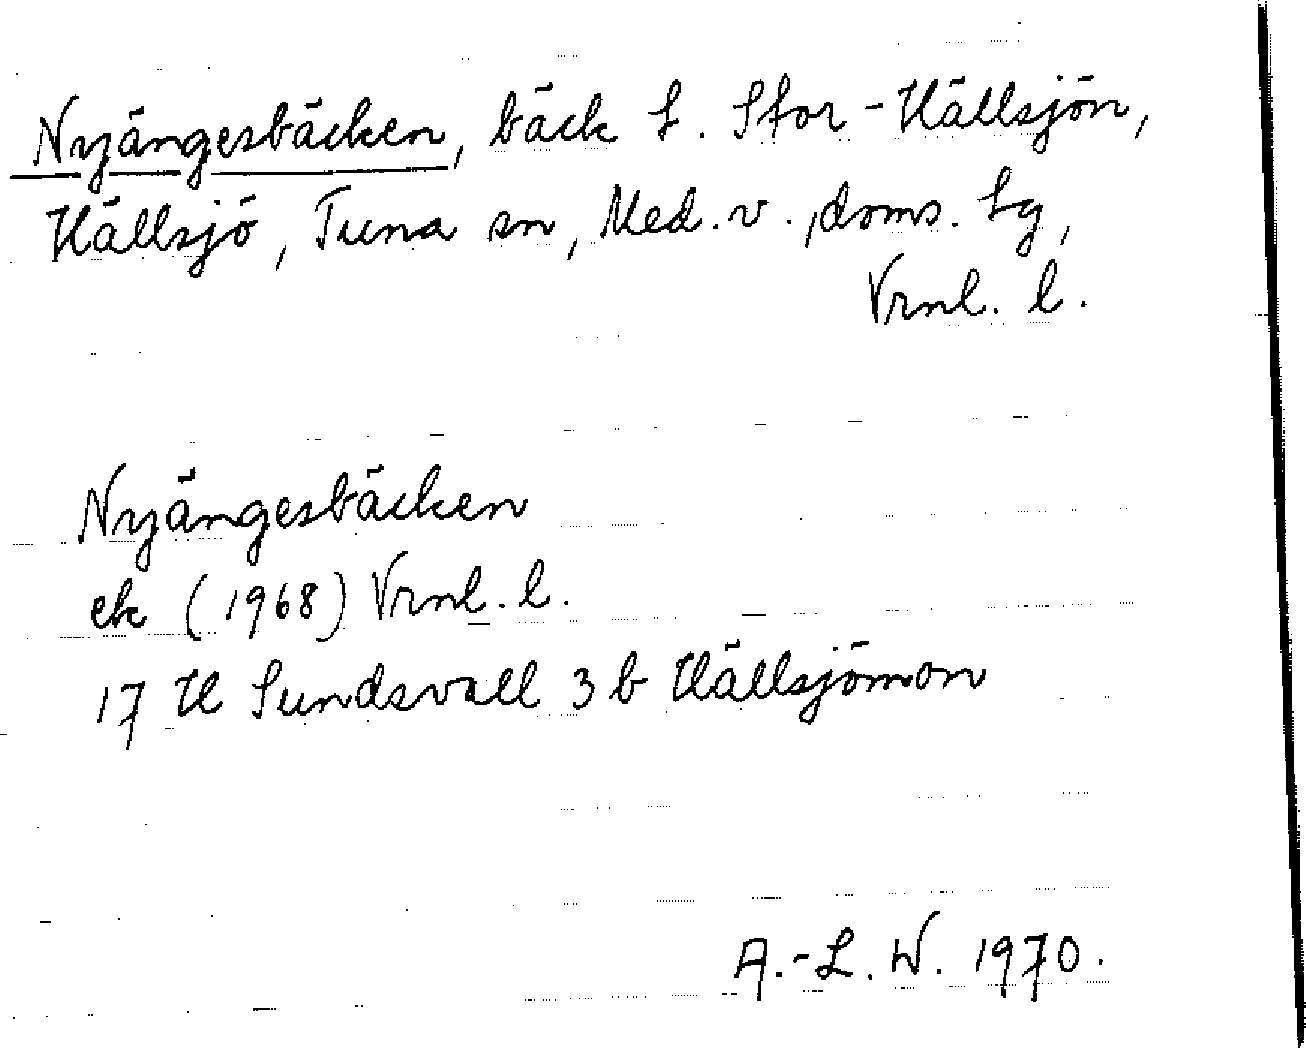 Nyängesbäcken, bäck t. Stor-Hällsjön,
Hällsjö, Tuna sn, Med. v., doms. tg,
Vrnl. l.
Nyängesbäcken
ek (1968) Vrnl. l.
17 H Sundsvall 3 b Hällsjömon
A.-L. W. 1970.